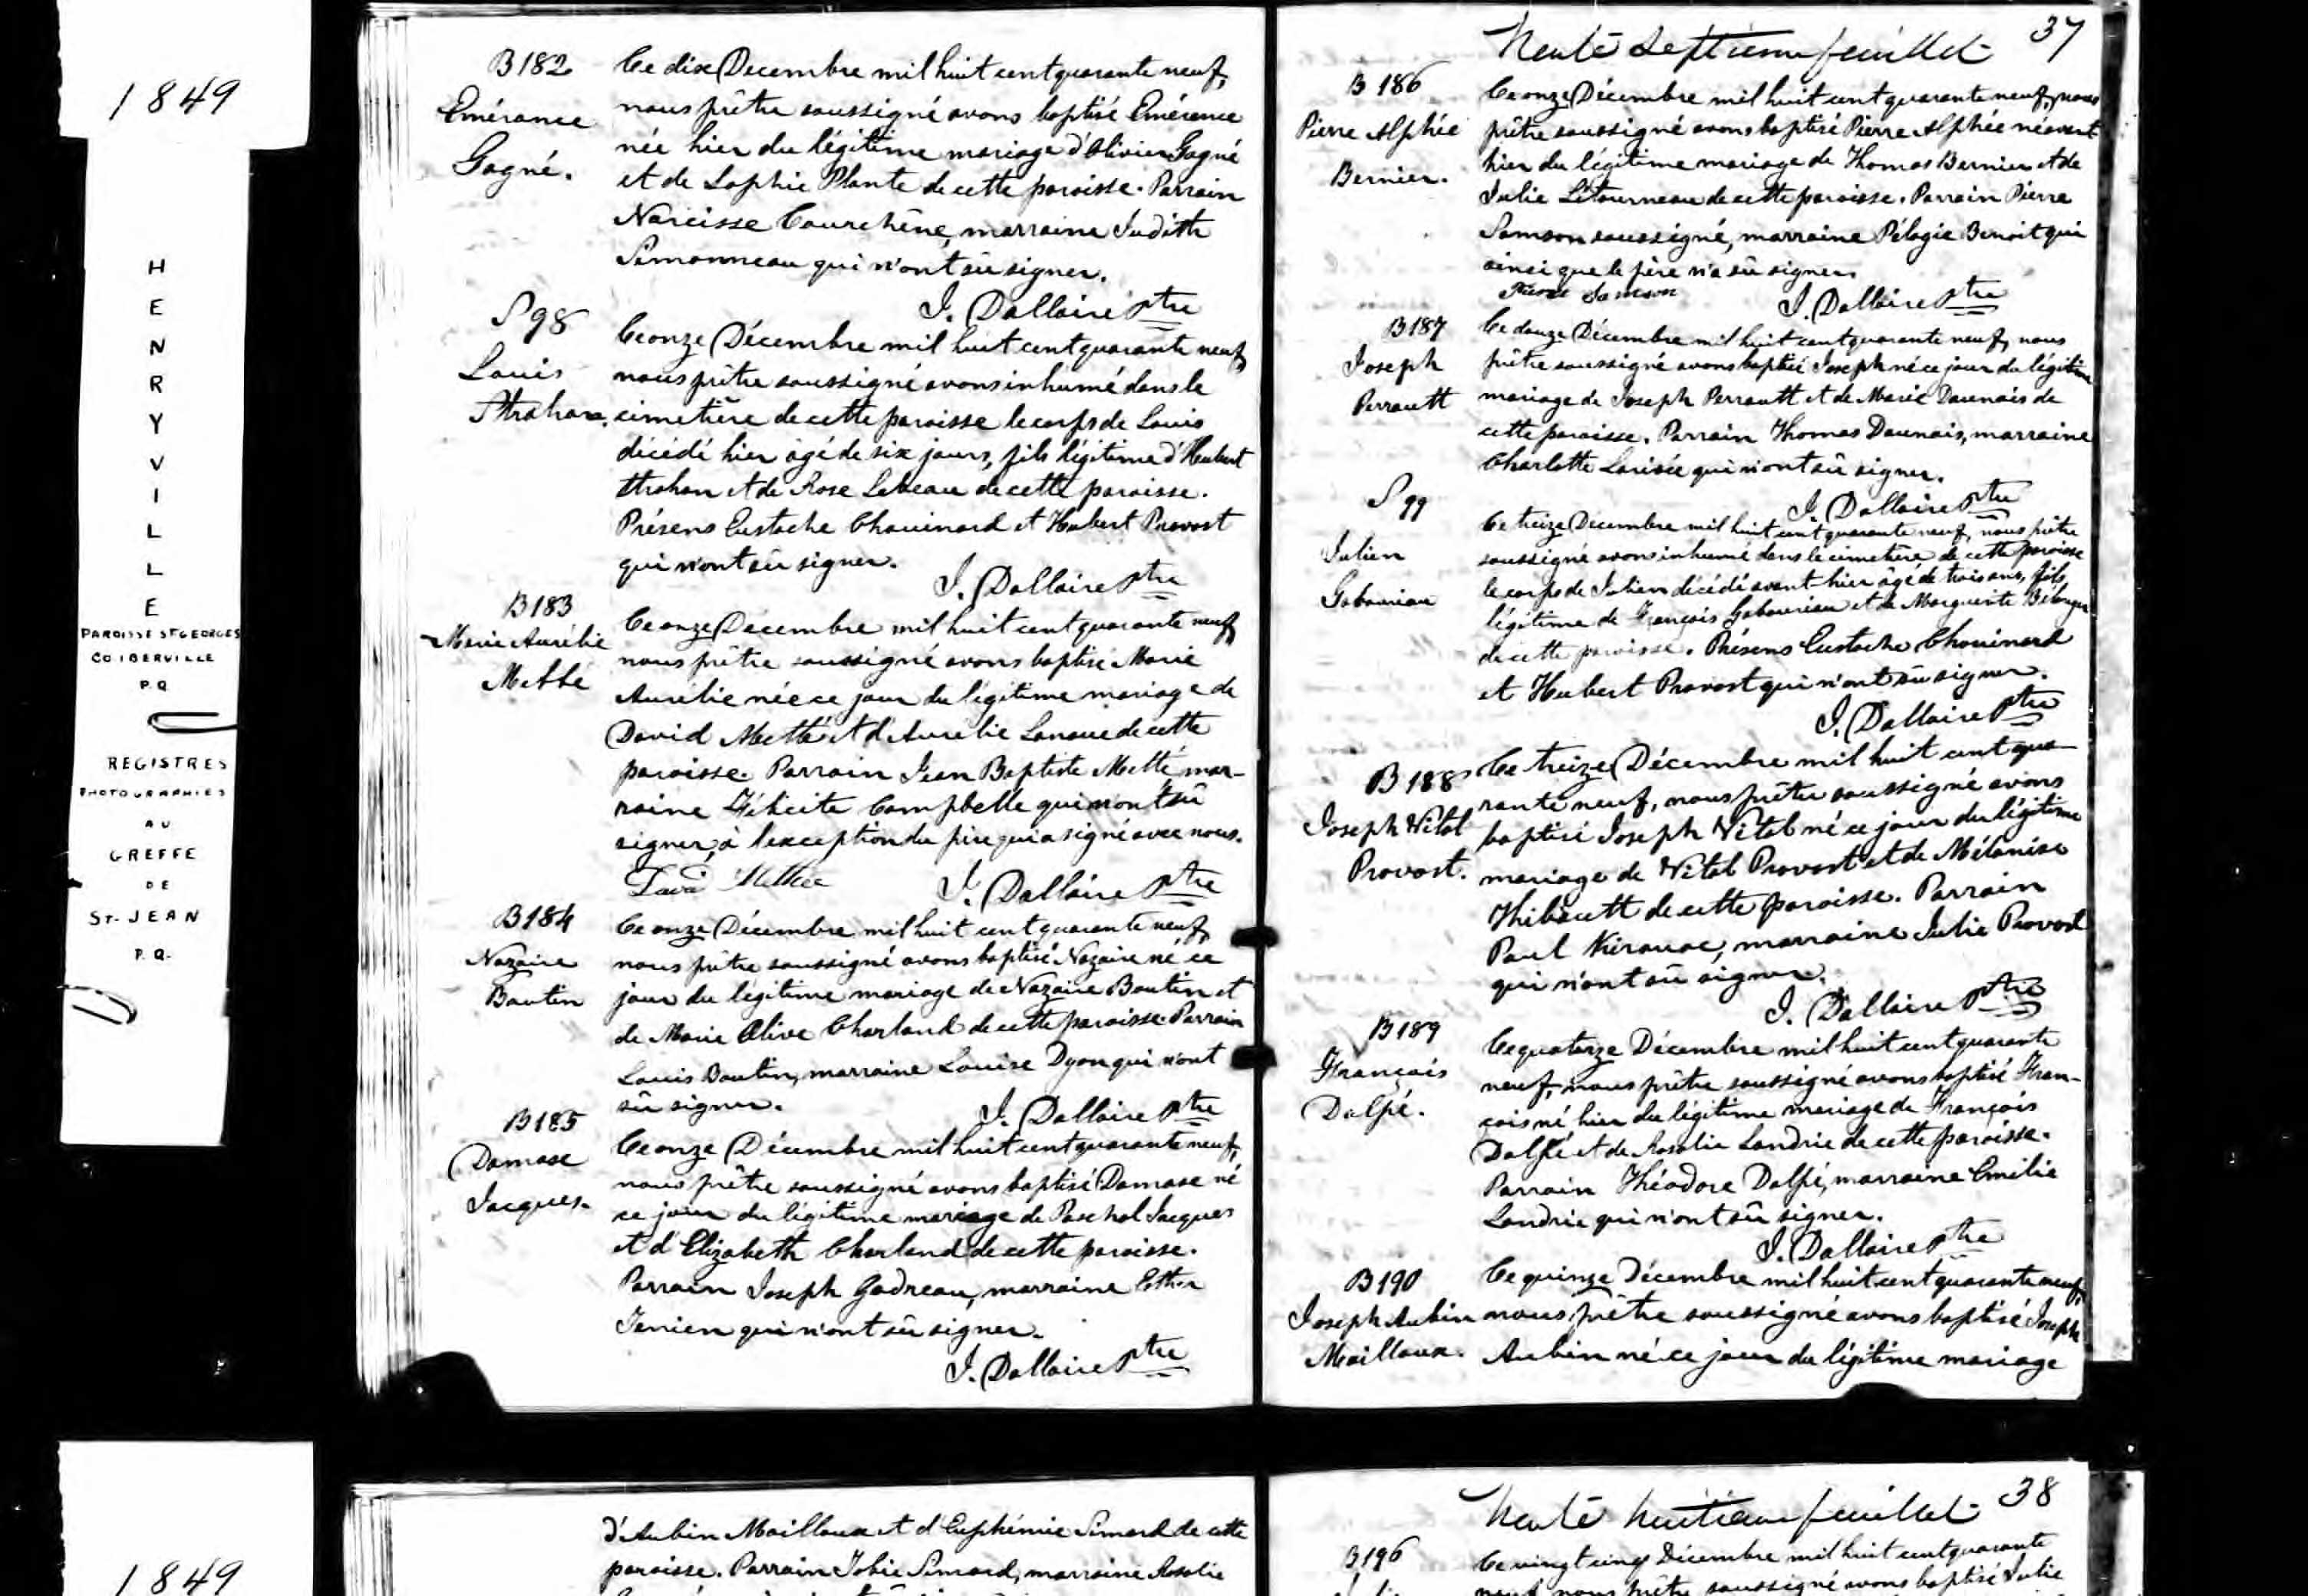 1849
HENRYVILLE
PAROISSE ST GEORGES
CO IBERVILLE
P.Q.
REGISTRES
PHOTOGRAPHIES
AU
GREFFE
DE
ST-JEAN
P.Q.
B182
Emérance
Gagné.
Ce dix Decembre mil huit cent quarante neuf,
nous prêtre soussigné avons baptisé Emérence
née hier du légitime mariage d'Olivier Gagné
et de Sophie Plante de cette paroisse. Parrain
Narcisse Courchêne, marraine Judith
Simonneau qui n'ont sû signer.
J. Dallaire Ptre
S98
Louis
Strahan.
Ce onze Décembre mil huit cent quarante neuf,
nous prêtre soussigné avons inhumé dans le
cimetière de cette paroisse le corps de Louis
décédé hier agé de six jours, fils légitime d'Hubert
Strahan et de Rose Lebeau de cette paroisse.
Présens Eustache Chouinard et Hubert Provost
qui n'ont sû signer.
J. Dallaire Ptre
B183
Marie Aurélie
Metté
Ce onze Décembre mil huit cent quarante neuf,
nous prêtre soussigné avons baptisé Marie
Aurélie née ce jour du légitime mariage de
David Metté et d'Aurélie Lanoue de cette
paroisse. Parrain Jean Baptiste Metté, mar-
raine Félicite Campbelle qui n'ont sû
signer, à l'exception du père qui a signé avec nous.
J. Dallaire Ptre
B184
Nazaire
Boutin
Ce onze Décembre mil huit cent quarante neuf,
nous prêtre soussigné avons baptisé Nazaire né ce
jour du légitime mariage de Nazaire Boutin et
de Marie Olive Charland de cette paroisse. Parrain
Louis Boutin, marraine Louise Dyon qui n'ont
sû signer.
J. Dallaire Ptre
B185
Damase
Jacques.
Ce onze Décembre mil huit cent quarante neuf,
nous prêtre soussigné avons baptisé Damase né
ce jour du légitime mariage de Paschal Jacques
et d'Elizabeth Charland de cette paroisse.
Parrain Joseph Gadreau, marraine Esther
qui n'ont sû signer.
J. Dallaire Ptre
Trente Septième feuillet 37
B186
Pierre Alphée
Bernier.
Ce onze Décembre mil huit cent quarante neuf, nous
prêtre soussigné avons baptisé Pierre Alphée né avant
hier du légitime mariage de Thomas Bernier et de
Julie Létourneau de cette paroisse. Parrain Pierre
Samson soussigné, marraine Pélagie Benoit qui
ainsi que le père n'a sû signer.
Pierre Samson
J. Dallaire Ptre
B187
Joseph
Perrault
Ce douze Décembre mil huit cent quarante neuf, nous
prêtre soussigné avons baptisé Joseph né ce jour du légitime
mariage de Joseph Perrault et de Marie Daunais de
cette paroisse. Parrain Thomas Daunais, marraine
Charlotte Larisée qui n'ont sû signer.
J. Dallaire Ptre
S99
Julien
Gabouriau
Ce treize Décembre mil huit cent quarante neuf, nous prêtre
soussigné avons inhumé dans le cimetière de cette paroisse
le corps de Julien décédé avant hier âgé de trois ans, fils
légitime de François Gabouriau et de Marguerite Bélanger
de cette paroisse. Présens Eustache Chouinard
et Hubert Provost qui n'ont sû signer.
J. Dallaire Ptre
B188
Joseph Vital
Provost.
Ce treize Décembre mil huit cent qua-
rante neuf, nous prêtre soussigné avons
baptisé Joseph Vital né ce jour du légitime
mariage de Vital Provost et de Mélanise
Thibault de cette paroisse. Parrain
Paul Kirouac, marraine Julie Provost
qui n'ont sû signer.
J. Dallaire Ptre
B189
François
Dalpé.
Ce quatorze Décembre mil huit cent quarante
neuf, nous prêtre soussigné avons baptisé Fran-
çois né hier du légitime mariage de François
Dalpé et de Rosalie Landrie de cette paroisse.
Parrain Théodore Dalpé, marraine Emilie
Landrie qui n'ont sû signer.
J. Dallaire Ptre
B190
Joseph Aubin
Mailloux.
Ce quinze Décembre mil huit cent quarante neuf,
nous prêtre soussigné avons baptisé Joseph
Aubin né ce jour du légitime mariage
1849
d'Aubin Mailloux et d'Euphémie Simard de cette
paroisse. Parrain Simard, marraine Rosalie
Trente huitième feuillet 38
B196
Ce vingt cinq Décembre mil huit cent quarante
neuf, nous prêtre soussigné avons baptisé Julie